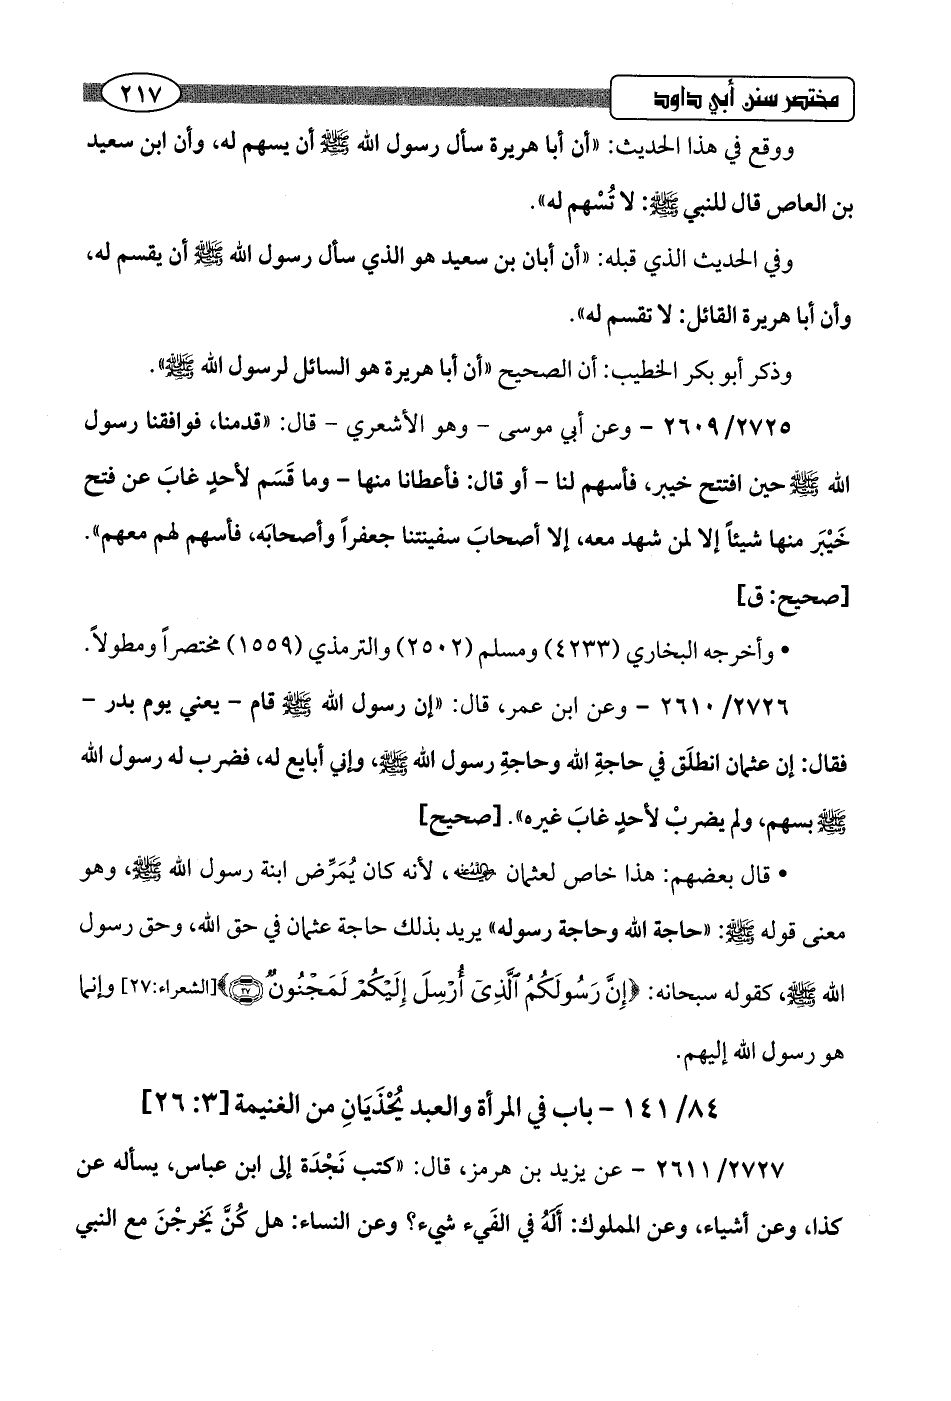 مختصر سنن أبي داود
٢١٧
ووقع في هذا الحديث: «أن أبا هريرة سأل رسول الله ﷺ أن يسهم له، وأن ابن سعيد
بن العاص قال للنبي ﷺ: لا تُسْهم له».
وفي الحديث الذي قبله: «أن أبان بن سعيد هو الذي سأل رسول الله ﷺ أن يقسم له،
وأن أبا هريرة القائل: لا تقسم له».
وذكر أبو بكر الخطيب: أن الصحيح «أن أبا هريرة هو السائل لرسول الله ﷺ».
٢٦٠٩/٢٧٢٥ – وعن أبي موسى – وهو الأشعري – قال: «قدمنا، فوافقنا رسول
الله ﷺ حين افتتح خيبر، فأسهم لنا – أو قال: فأعطانا منها – وما قَسَم لأحدٍ غابَ عن فتح
خَيْبَر منها شيئاً إلا لمن شهد معه، إلا أصحابَ سفينتنا جعفراً وأصحابَه، فأسهم لهم معهم».
[صحيح: ق]
• وأخرجه البخاري (٤٢٣٣) ومسلم (٢٥٠٢) والترمذي (١٥٥٩) مختصراً ومطولاً.
٢٦١٠/٢٧٢٦ – وعن ابن عمر، قال: «إن رسول الله ﷺ قام – يعني يوم بدر –
فقال: إن عثمان انطلَق في حاجةِ الله وحاجةِ رسول الله ﷺ، وإني أبايع له، فضرب له رسول الله
ﷺ بسهم، ولم يضربْ لأحدٍ غابَ غيره». [صحيح]
• قال بعضهم: هذا خاص لعثمان رضي الله عنه، لأنه كان يُمَرِّض ابنة رسول الله ﷺ، وهو
معنى قوله ﷺ: «حاجة الله وحاجة رسوله» يريد بذلك حاجة عثمان في حق الله، وحق رسول
الله ﷺ، كقوله سبحانه: ﴿إِنَّ رَسُولَكُمُ ٱلَّذِىٓ أُرْسِلَ إِلَيْكُمْ لَمَجْنُونٌ ٢٧﴾ [الشعراء:٢٧] وإنما
هو رسول الله إليهم.
٨٤/ ١٤١ – باب في المرأة والعبد يُحْذَيَانِ من الغنيمة [٣: ٢٦]
٢٦١١/٢٧٢٧ – عن يزيد بن هرمز، قال: «كتب نَجْدَة إلى ابن عباس، يسأله عن
كذا، وعن أشياء، وعن المملوك: أَلَهُ في الفَيء شيء؟ وعن النساء: هل كُنَّ يَخرجْنَ مع النبي